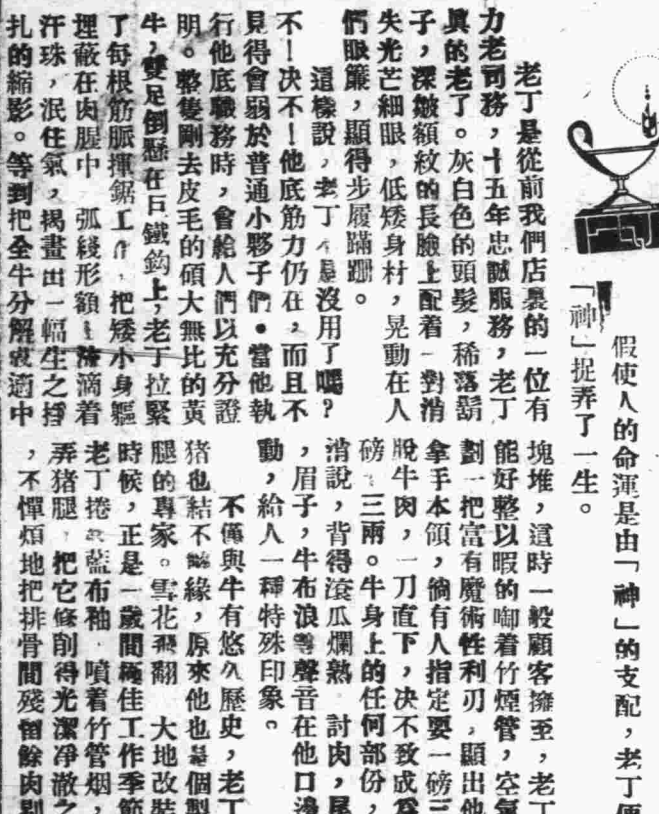 假使人的命運是由「神」的支配，老丁便
「神」捉弄了一生。
老丁是從前我們店裏的一位有
力老司務，十五年忠誠服務，老丁
眞的老了。灰白色的頭髮，稀落鬍
子，深皺額紋的長臉上配着一對消
失光芒細眼，低矮身材，晃動在人
們眼簾，顯得步履蹣跚。
這樣說，老丁不是沒用了嗎？
不！决不！他底筋力仍在，而且不
見得會弱於普通小夥子們。當他執
行他底職務時，會給人們以充分證
明。整隻剛去皮毛的碩大無比的黃
牛，雙足倒懸在巨鐵鈎上，老丁拉緊
了每根筋脈揮鋸工作，把矮小身軀
埋蔽在肉腥中 弧綫形額上滴着
汗珠，泯住氣，揭畫出一幅生之掙
扎的縮影。等到把全牛分解適中
塊堆，這時一般顧客擁至，老丁
能好整以暇的啣着竹煙管，空氣
劃一把富有魔術性利刃，顯出他
拿手本領，倘有人指定要一磅三
脫牛肉，一刀直下，决不致成爲
磅、三兩。牛身上的任何部份，
消說，背得滾瓜爛熟 討肉，尾
，眉子，牛布浪等聲音在他口邊
動，給人一種特殊印象。
不僅與牛有悠久歷史，老丁
猪也結不解緣，原來他也是個製
腿的專家。雪花飛翻 大地改裝
時候，正是一歲間極佳工作季節
老丁捲起藍布袖 噴着竹管烟，
弄猪腿，把它修削得光潔淨澈之
，不憚煩地把排骨間殘留餘肉剔